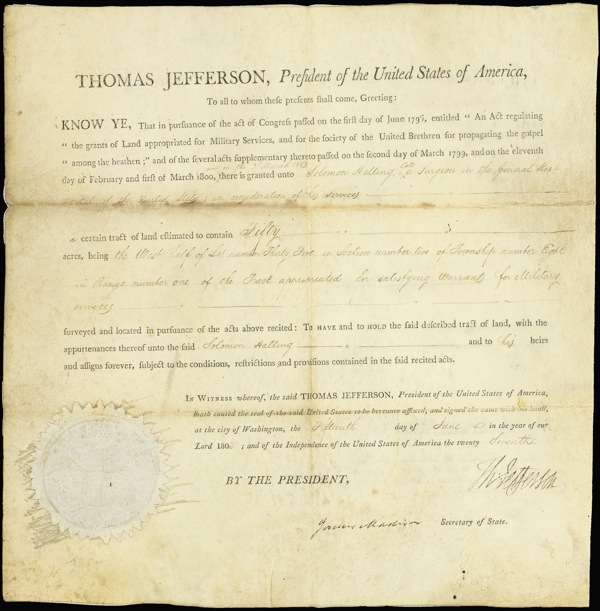 THOMAS JEFFERSON, President of the United States of America,
To all to whom these presents shall come, Greeting:
KNOW YE, That in pursuance of the act of Congress passed on the first day of June 1796, entitled “ An Act regulating
“ the grants of Land appropriated for Military Services, and for the society of the United Brethren for propagating the gospel
“ among the heathen;” and of the several acts supplementary thereto passed on the second day of March 1799, and on the eleventh
day of February and first of March 1800, there is granted unto Solomon Halling, late a Surgeon in the General Hos-
of the United States in consideration of his services
a certain tract of land estimated to contain Fifty
acres, being the West half of Lot number Thirty Five in Section number two of Township number Eight
in Range number one of the Tract appropriated for satisfying warrants for Military
services
surveyed and located in pursuance of the acts above recited: To HAVE and to HOLD the said described tract of land, with the
appurtenances thereof unto the said Solomon Halling and to his heirs
and assigns forever, subject to the conditions, restrictions and provisions contained in the said recited acts.
IN WITNESS whereof, the said THOMAS JEFFERSON, President of the United States of America,
hath caused the seal of the said United States to be hereunto affixed, and signed the same with his hand,
at the city of Washington, the Fifteenth day of June in the year of our
Lord 180 ; and of the Independence of the United States of America the twenty Seventh
BY THE PRESIDENT, Th Jefferson
James Madison Secretary of State.